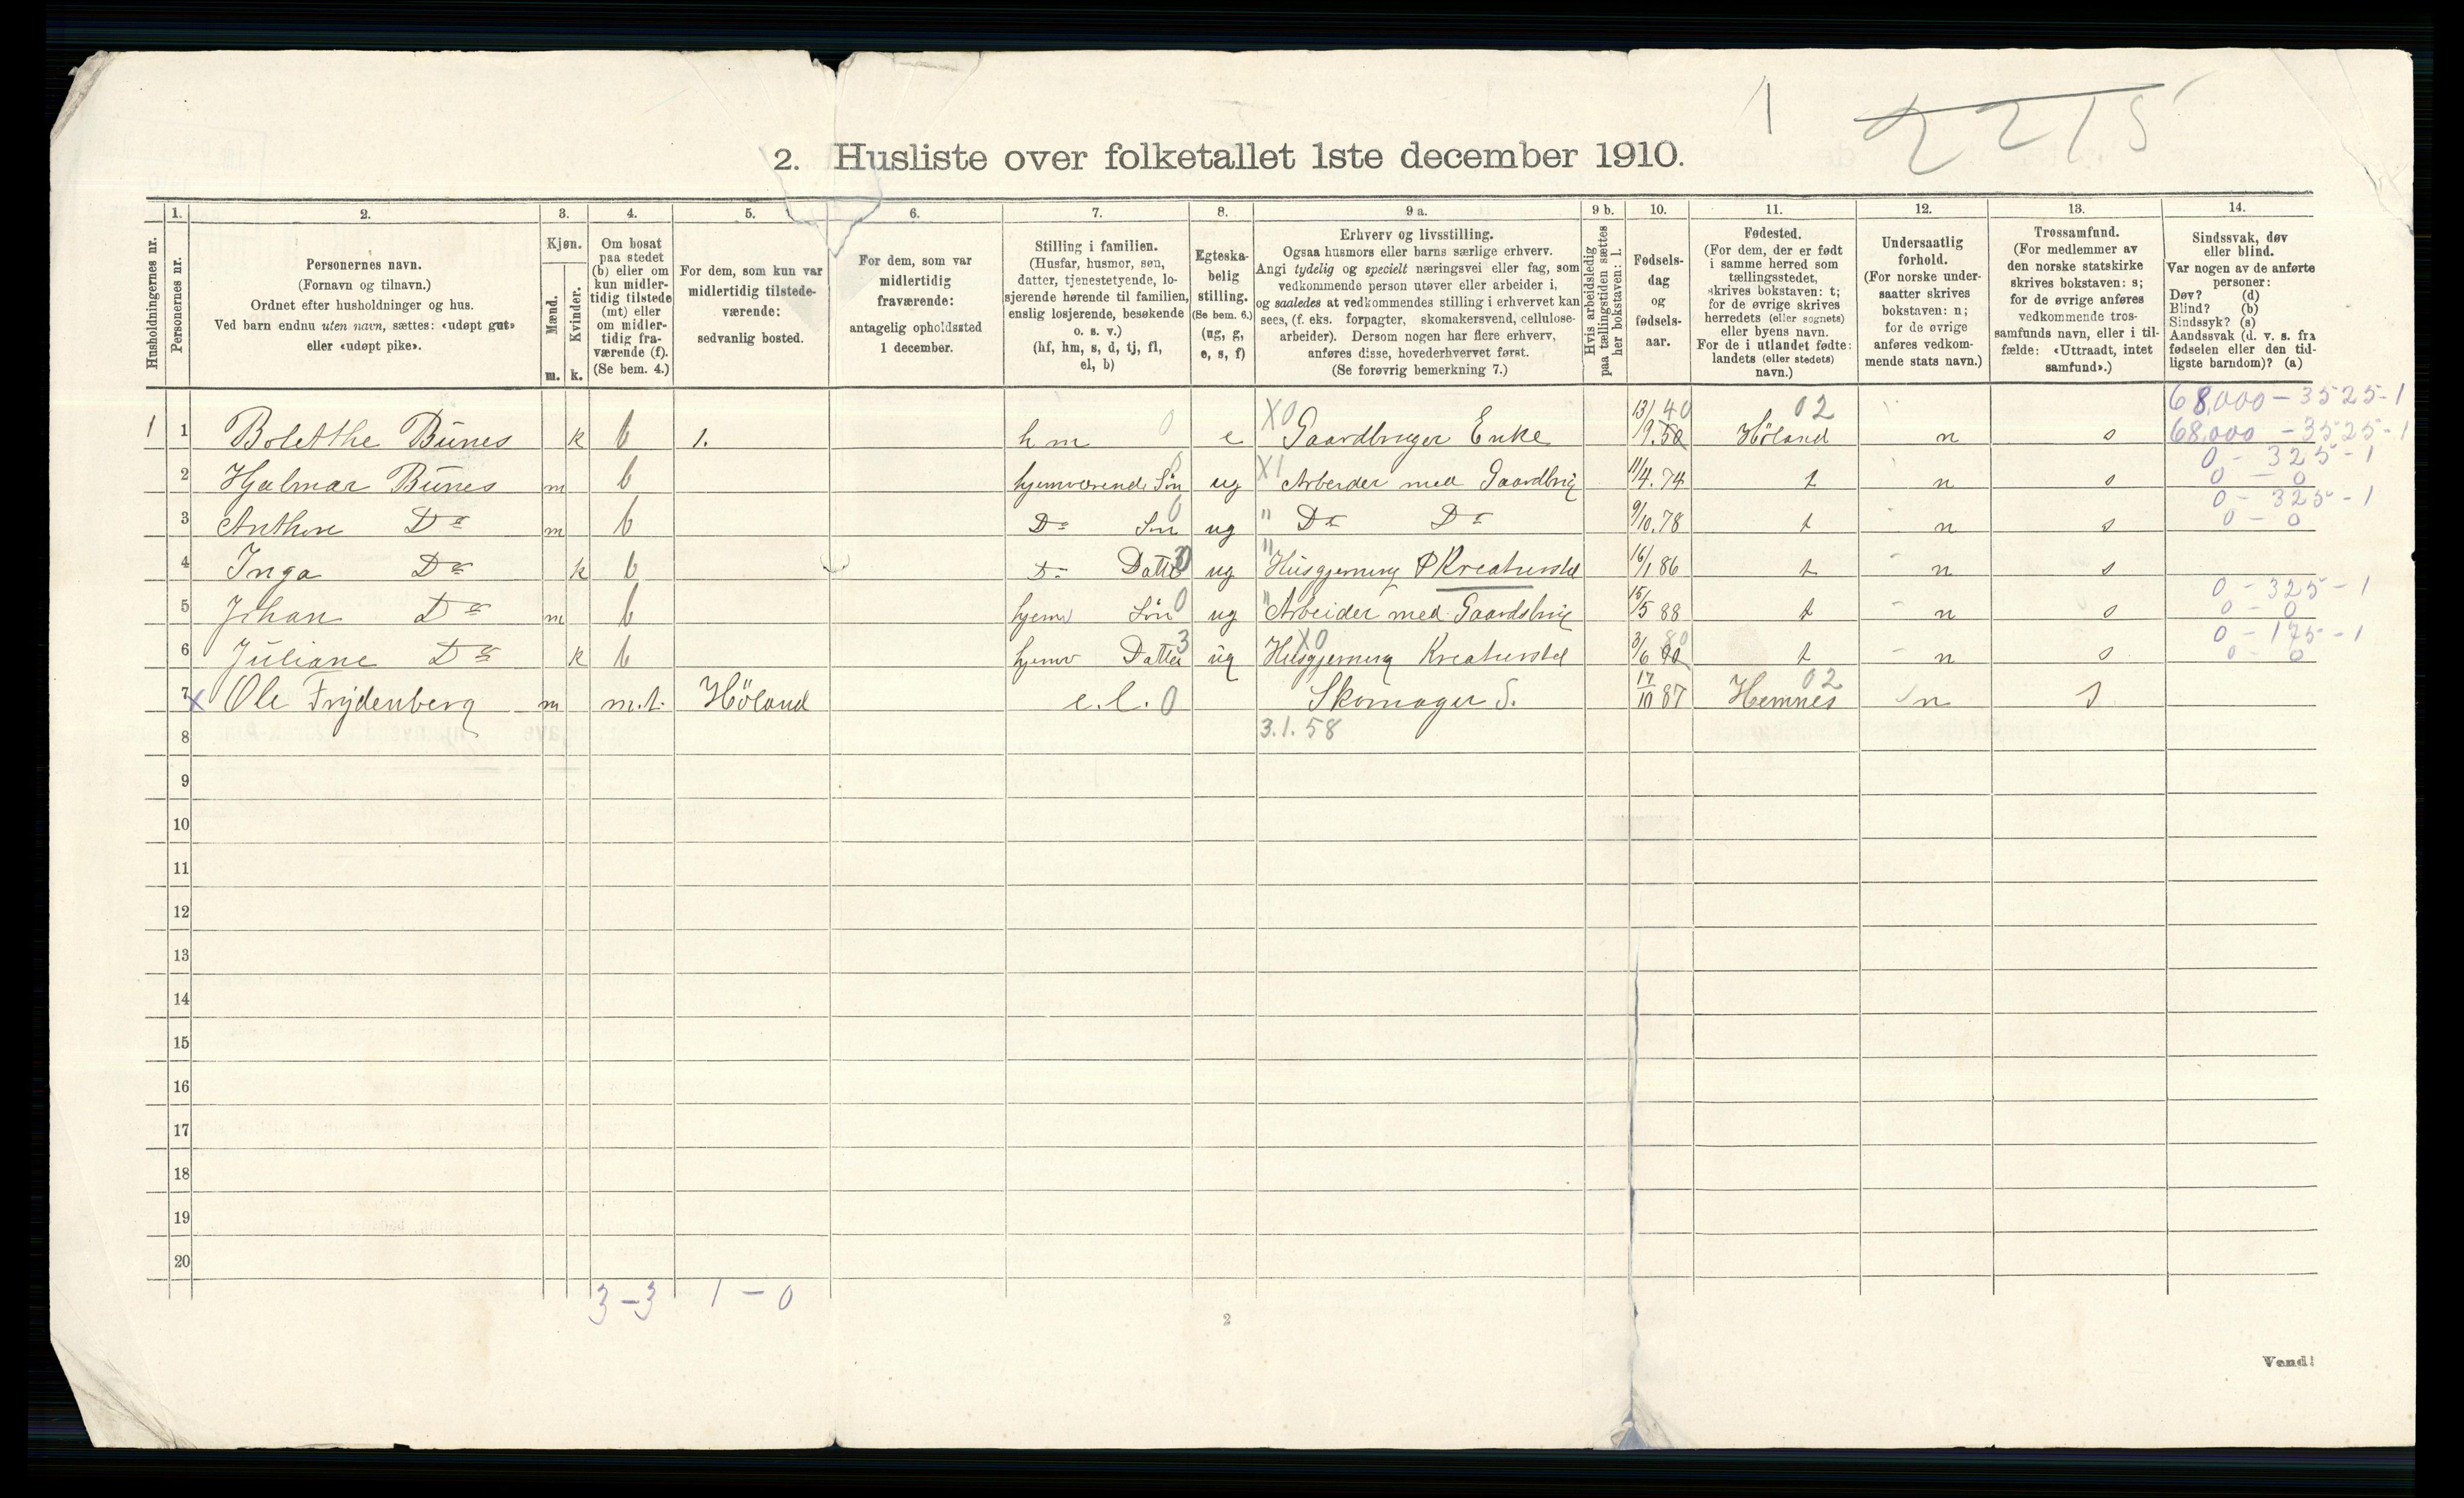 1 2215
2. Husliste over folketallet 1ste december 1910.
1. 2. 3. 4. 5. 6. 7. 8. 9 a. 9 b. 10. 11. 12. 13. 14.
Husholdningernes nr.
Personernes nr.
Personernes navn.
(Fornavn og tilnavn.)
Ordnet efter husholdninger og hus.
Ved barn endnu uten navn, sættes: «udøpt gut»
eller «udøpt pike».
Kjøn.
Mænd.
Kvinder.
m. k.
Om bosat
paa stedet
(b) eller om
kun midler-
tidig tilstede
(mt) eller
om midler-
tidig fra-
værende (f).
(Se bem. 4.)
For dem, som kun var
midlertidig tilstede-
værende:
sedvanlig bosted.
For dem, som var
midlertidig
fraværende:
antagelig opholdssted
1 december.
Stilling i familien.
(Husfar, husmor, søn,
datter, tjenestetyende, lo-
sjerende hørende til familien,
enslig losjerende, besøkende
o. s. v.)
(hf, hm, s, d, tj, fl,
el, b)
Egteska-
belig
stilling.
(Se bem. 6.)
(ug, g,
e, s, f)
Erhverv og livsstilling.
Ogsaa husmors eller barns særlige erhverv.
Angi tydelig og specielt næringsvei eller fag, som
vedkommende person utøver eller arbeider i,
og saaledes at vedkommendes stilling i erhvervet kan
sees, (f. eks. forpagter, skomakersvend, cellulose-
arbeider). Dersom nogen har flere erhverv,
anføres disse, hovederhvervet først.
(Se forøvrig bemerkning 7.)
Hvis arbeidsledig
paa tællingstiden sættes
her bokstaven: l.
Fødsels-
dag
og
fødsels-
aar.
Fødested.
(For dem, der er født
i samme herred som
tællingsstedet,
skrives bokstaven: t;
for de øvrige skrives
herredets (eller sognets)
eller byens navn.
For de i utlandet fødte:
landets (eller stedets)
navn.)
Undersaatlig
forhold.
(For norske under-
saatter skrives
bokstaven: n;
for de øvrige
anføres vedkom-
mende stats navn.)
Trossamfund.
(For medlemmer av
den norske statskirke
skrives bokstaven: s;
for de øvrige anføres
vedkommende tros-
samfunds navn, eller i til-
fælde: «Uttraadt, intet
samfund».)
Sindssvak, døv
eller blind.
Var nogen av de anførte
personer:
Døv? (d)
Blind? (b)
Sindssyk? (s)
Aandssvak (d. v. s. fra
fødselen eller den tid-
ligste barndom)? (a)
68,000 - 3525-1
1 1 Bolethe Bünes k b 1. hm 0 e X0 Gaardbruger Enke 13/9.50 40 Höland 02 n s 68,000 - 3525-1
0 - 325 - 1
2 Hjalmar Bünes m b hjemværende Sön 0 ug X1 Arbeider med Gaardbrug 11/4.74 t n s 0 - 0
0 - 325 - 1
3 Anthon Do m b Do Sön 0 ug " Do Do 9/10.78 t n s 0 - 0
4 Inga Do k b Do Datter ug " Husgjerning & Kreaturstel 16/1 86 t n s
0 - 325 - 1
5 Johan Do m b hjemv Sön 0 ug " Arbeider med Gaardsbrug 15/5 88 t n s 0 - 0
0 - 175 - 1
6 Juliane Do k b hjemv Datter 3 ug X0 Husgjerning Kreaturstel 3/6 80 t n s 0 - 0
7 x Ole Frydenberg m m.t. Höland e.l. 0 Skomager S. 17/10 87 Hemnes 02 n s
8 3.1.58
9
10
11
12
13
14
15
16
17
18
19
20
3-3 1-0
2
Vend!